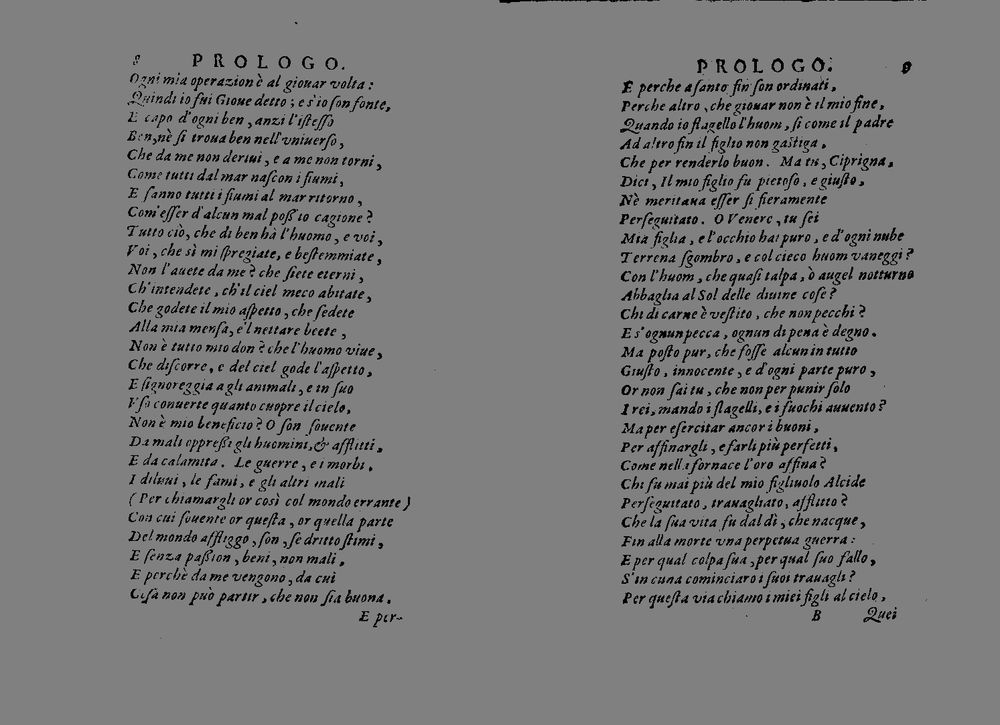 8 PROLOGO.
Ogni mia operazion è al giouar volta:
Quindi io fui Gioue detto; e s'io son fonte,
E capo d'ogni ben, anzi l'istesso
Ben, nè si troua ben nell'vniuerso,
Che da me non deriui, e a me non torni,
Come tutti dal mar nascon i fiumi,
E fanno tutti i fiumi al mar ritorno,
Com'esser d'alcun mal poss'io cagione?
Tutto ciò, che di ben hà l'huomo, e voi,
Voi, che sì mi spregiate, e bestemmiate,
Non l'auete da me? che siete eterni,
Ch'intendete, ch'il ciel meco abitate,
Che godete il mio aspetto, che sedete
Alla mia mensa, e'l nettare beete,
Non è tutto mio don? che l'huomo viue,
Che discorre, e del ciel gode l'aspetto,
E signoreggia agli animali, e in suo
Vso conuerte quanto cuopre il cielo,
Non è mio beneficio? O son souente
Da mali oppressi gli huomini, & afflitti,
E da calamita. Le guerre, e i morbi,
I diluui, le fami, e gli altri mali
(Per chiamargli or così col mondo errante)
Con cui souente or questa, or quella parte
Del mondo affliggo, son, se dritto stimi,
E senza passion, beni, non mali,
E perchè da me vengono, da cui
Cosa non può partir, che non sia buona,
E per-
PROLOGO. 9
E perche a santo fin son ordinati,
Perche altro, che giouar non è il mio fine,
Quando io flagello l'huom, si come il padre
Ad altro fin il figlio non gastiga,
Che per renderlo buon. Ma tu, Ciprigna,
Dici, Il mio figlio fu pietoso, e giusto,
Nè meritaua esser sì fieramente
Perseguitato. O Venere, tu sei
Mia figlia, e l'occhio hai puro, e d'ogni nube
Terrena sgombro, e col cieco huom vaneggi?
Con l'huom, che quasi talpa, ò augel notturno
Abbaglia al Sol delle diuine cose?
Chi di carne è vestito, che non pecchi?
E s'ognun pecca, ognun di pena è degno.
Ma posto pur, che fosse alcun in tutto
Giusto, innocente, e d'ogni parte puro,
Or non sai tu, che non per punir solo
I rei, mando i flagelli, e i fuochi auuento?
Ma per esercitar ancor i buoni,
Per affinargli, e farli più perfetti,
Come nella fornace l'oro affina?
Chi fu mai più del mio figliuolo Alcide
Perseguitato, trauagliato, afflitto?
Che la sua vita fu dal dì, che nacque,
Fin alla morte vna perpetua guerra:
E per qual colpa sua, per qual suo fallo,
S'in cuna cominciaro i suoi trauagli?
Per questa via chiamo i miei figli al cielo,
B Quei